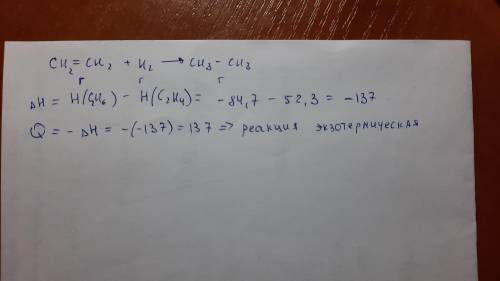 CH₂=CH₂ + H₂ → CH₃–CH₃
г г г
ΔH = H(C₂H₆) – H(C₂H₄) = -84,7 – 52,3 = -137
Q = -ΔH = -(-137) = 137 => реакция экзотермическая